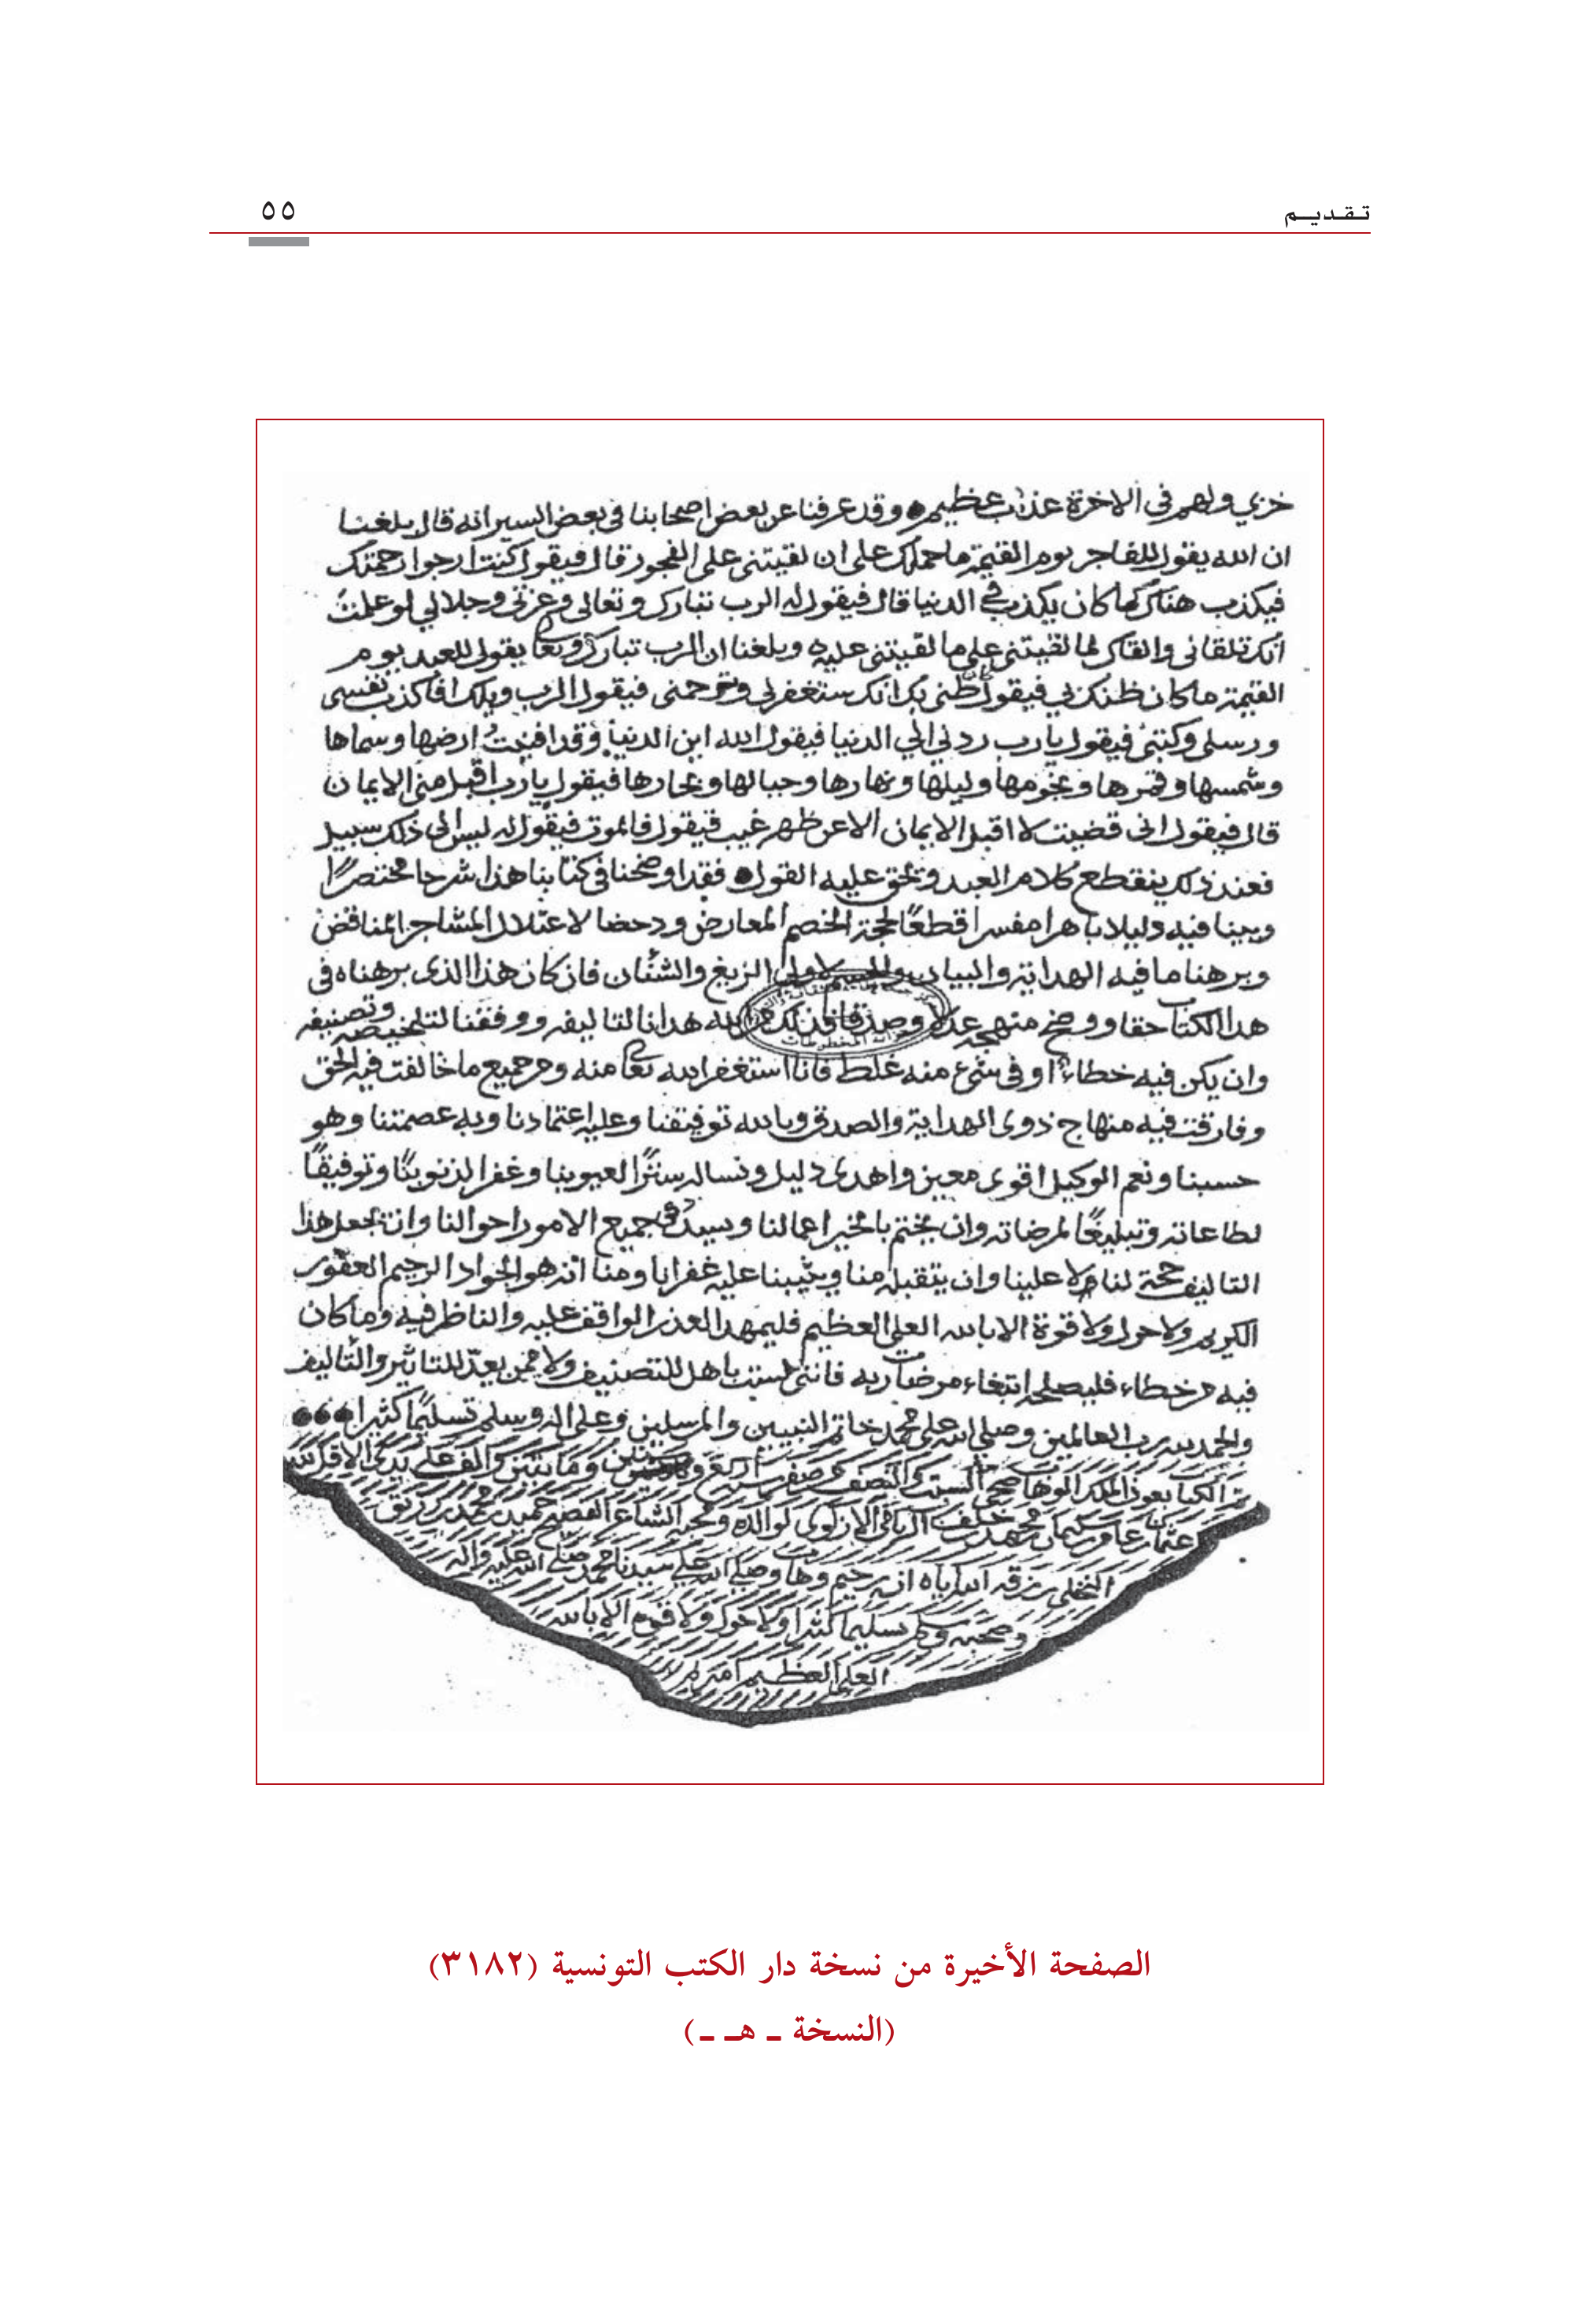 تقديم
٥٥
خزي ولهم في الاخرة عذاب عظيم وقد عرفنا عن بعض اصحابنا في بعض السير انه قال بلغنا
ان الله يقول للفاجر يوم القيمة ما حملك على ان لقيتني على الفجور قال فيقول كنت ارجوا رحمتك
فيكذب هناك كما كان يكذب في الدنيا قال فيقول له الرب تبارك وتعالى وعزتي وجلالي لو علمت
انك تلقاني والقاك لما لقيتني على ما لقيتني عليه وبلغنا ان الرب تبارك وتعالى يقول للعبد يوم
القيمة ما كان ظنك بي فيقول ظني بك انك ستغفر لي وترحمني فيقول الرب ويلك افاكذب نفسي
ورسلي وكتبي فيقول يا رب ردني الى الدنيا فيقول الله اين الدنيا وقد افنيت ارضها وسماها
وشمسها وقمرها ونجومها وليلها ونهارها وجبالها وبحارها فيقول يا رب اقبل مني الايمان
قال فيقول اني قضيت لا اقبل الايمان الا عن ظهر غيب فيقول فالموت فيقول له ليس الى ذلك سبيل
فعند ذلك ينقطع كلام العبد ويحق عليه القول فقد اوضحنا في كتابنا هذا شرحا مختصرًا
وبينا فيه دليلا باهرا مفسرا قطعًا لحجة الخصم المعارض ودحضا لاعتلال المشاجر المناقض
وبرهنا ما فيه الهداية والبيان لاولي الزيغ والشنٔان فان كان هذا الذي برهناه في
هذا الكتاب حقا ووضح منهجه عدلا وصدقا فذلك من الله هدانا لتاليفه ووفقنا لتلخيصه وتصنيفه
وان يكن فيه خطاء او في شيء منه غلط فانا استغفر الله تعالى منه ومن جميع ما خالفت فيه الحق
وفارقت فيه منهاج ذوي الهداية والصدق وبالله توفيقنا وعليه اعتمادنا وبه عصمتنا وهو
حسبنا ونعم الوكيل اقوى معين واهدى دليل ونساله سترًا لعيوبنا وغفرا لذنوبنا وتوفيقًا
لطاعاته وتبليغًا لمرضاته وان يختم بالخير اعمالنا ويسدد في جميع الامور احوالنا وان يجعل هذا
التاليف حجة لنا ولا علينا وان يتقبله منا ويثيبنا عليه غفرانا ومنا انه هو الجواد الرحيم الغفور
الكريم ولا حول ولا قوة الا بالله العلي العظيم فليمهد العذر الواقف عليه والناظر فيه وما كان
فيه من خطاء فليصلحه ابتغاء مرضات ربه فانني لست باهل للتصنيف ولا ممن يعدّ للتاثير والتاليف
والحمد لله رب العالمين وصلى الله على محمد خاتم النبيين والمرسلين وعلى اله وسلم تسليمًا كثيرا
تم الكتاب بعون الملك الوهاب صبح السبت والنصف من صفر سنة اربع وماىتين والف على يدي الاقل لله
عثمان بن عامر بن سليمان بن محمد بن خلف لوالده ومحبه الشاعر الفصيح حميد بن محمد بن رزيق
النخلي رزقه الله اياه انه رحيم وهاب وصلى الله على سيدنا محمد صلى الله عليه واله
وصحبه وسلم تسليما كثيرا ولا حول ولا قوة الا بالله
العلي العظيم امين
الصفحة الأخيرة من نسخة دار الكتب التونسية (٣١٨٢)
(النسخة ـ هـ ـ)